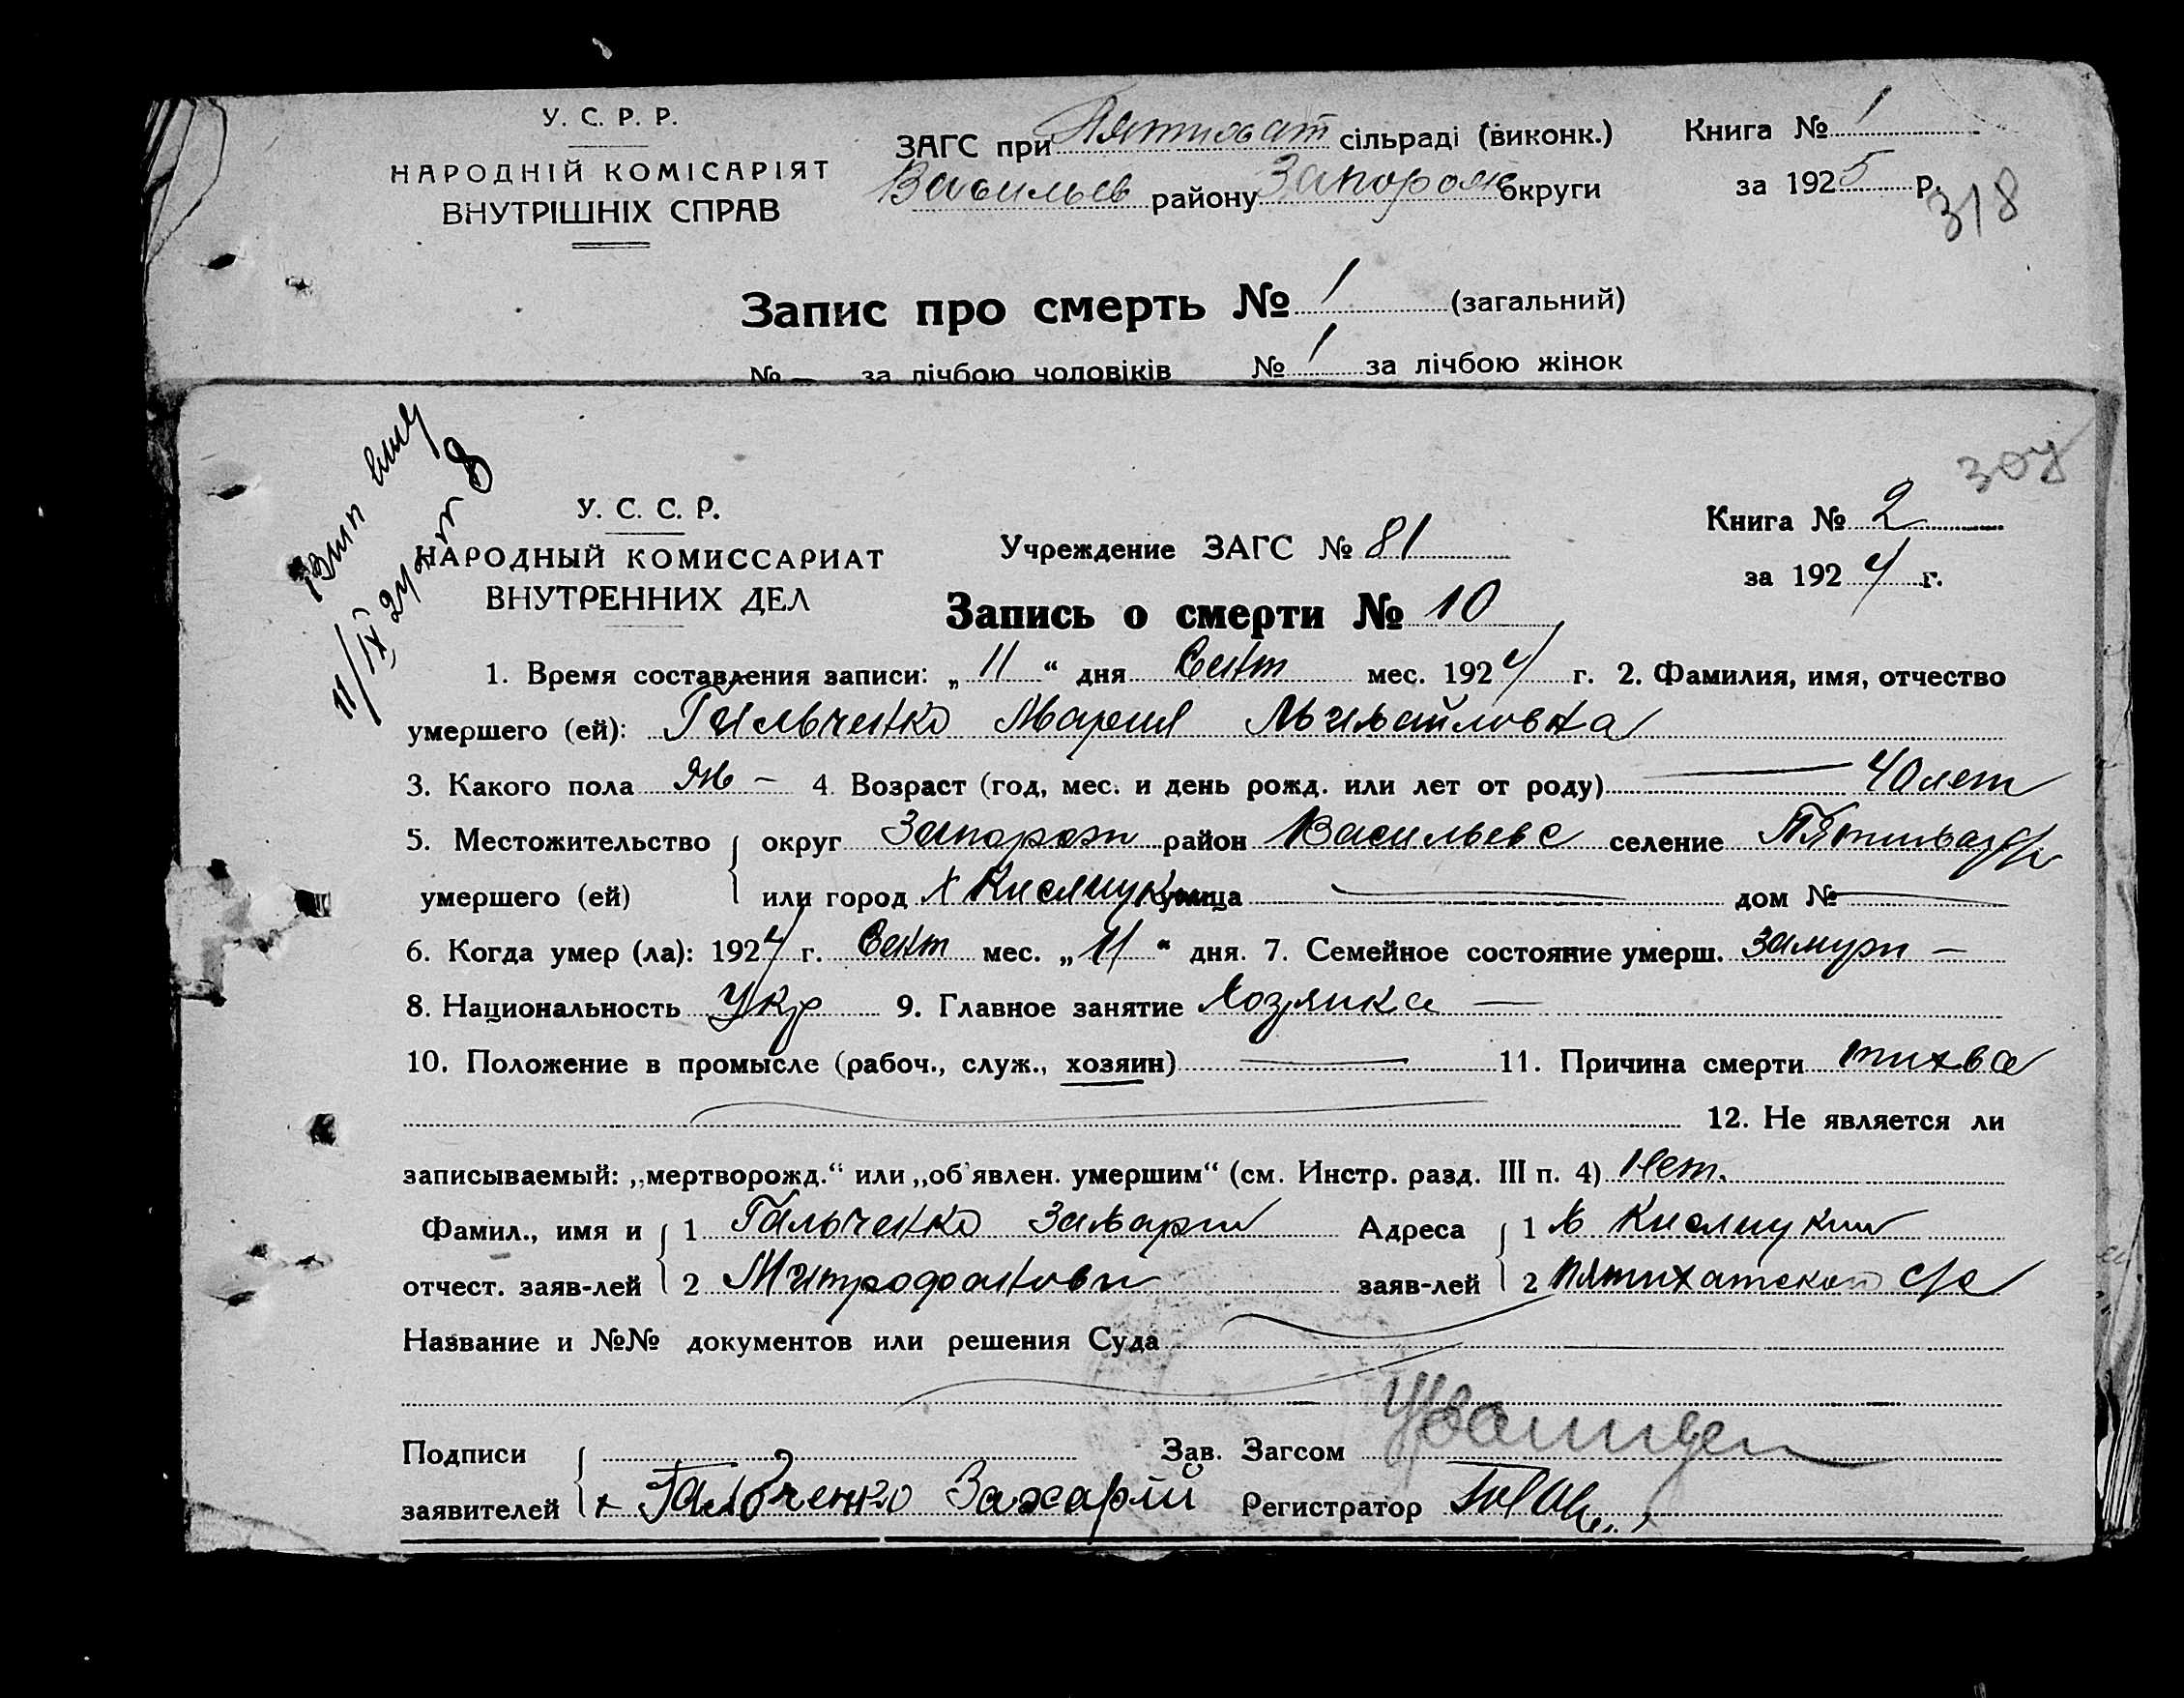 У. С. Р. Р.
НАРОДНІЙ КОМІСАРІЯТ
ВНУТРІШНІХ СПРАВ
ЗАГС при Пятихат сільраді (виконк.) Книга № 1
Васильев району Запорож округи за 1925 р.
318
Запис про смерть № 1 (загальний)
№ — за лічбою чоловіків № 1 за лічбою жінок
304
11/IX 24 г
У. С. С. Р.
НАРОДНЫЙ КОМИССАРИАТ
ВНУТРЕННИХ ДЕЛ
Учреждение ЗАГС № 81
Книга № 2
за 1924 г.
Запись о смерти № 10
1. Время составления записи: „ 11 “ дня Сент мес. 1924 г. 2. Фамилия, имя, отчество
умершего (ей): Гальченко Мария Михайловна
3. Какого пола Ж — 4. Возраст (год, мес. и день рожд. или лет от роду) — 40 лет
5. Местожительство округ Запорож район Васильевс селение Пятихат
умершего (ей) или город х Кислицкий улица — дом № —
6. Когда умер (ла): 1924 г. Сент мес. „ 11 “ дня. 7. Семейное состояние умерш. Замужн —
8. Национальность Укр 9. Главное занятие Хозяйка —
10. Положение в промысле (рабоч., служ., хозяин) — 11. Причина смерти
12. Не является ли
записываемый: „мертворожд.“ или „об'явлен. умершим“ (см. Инстр. разд. III п. 4) Нет.
Фамил., имя и 1 Гальченко Захарий Адреса 1 х
отчест. заяв-лей 2 Митрофанови заяв-лей 2 Пятихатской с/с
Название и №№ документов или решения Суда
Подписи Зав. Загсом
заявителей + Гальченко Захарій Регистратор